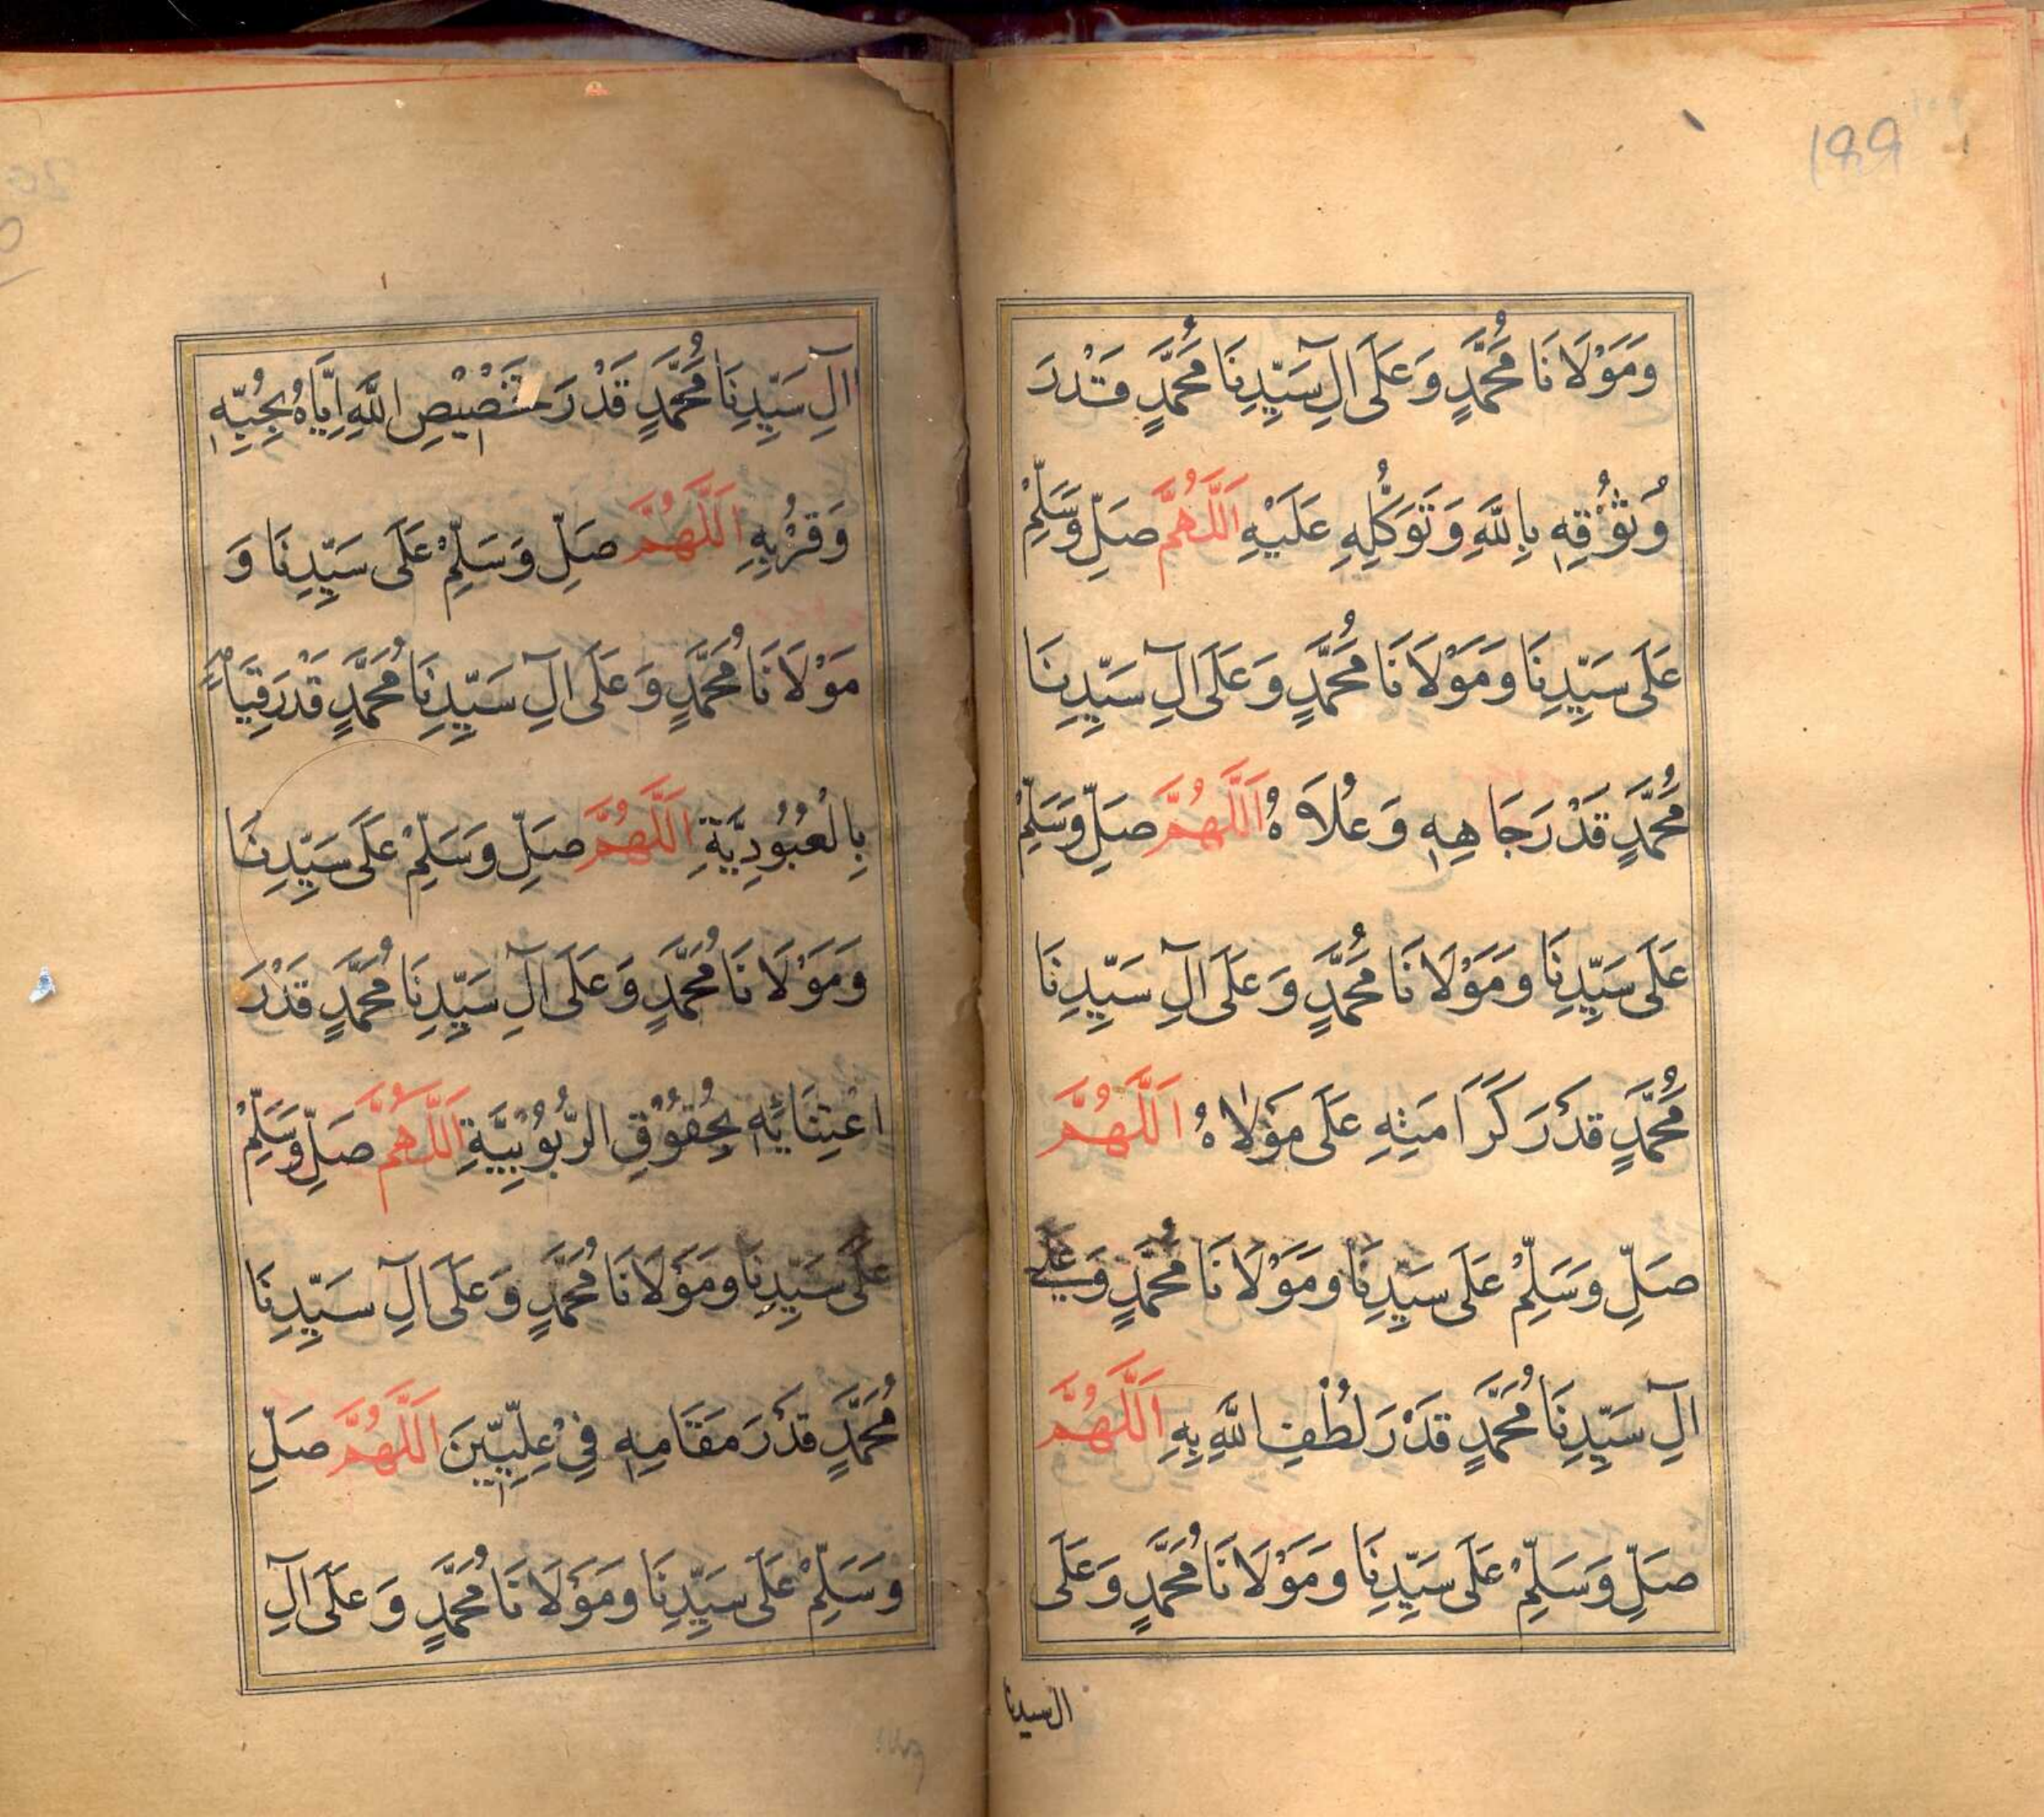 199
وَمَوْلَانَا مُحَمَّدٍ وَعَلَى اٰلِ سَيِّدِنَا مُحَمَّدٍ قَدْرَ
وُثُوْقِهٖ بِاللّٰهِ وَتَوَكُّلِهِ عَلَيْهِ اَللّٰهُمَّ صَلِّ وَسَلِّمْ
عَلَى سَيِّدِنَا وَمَوْلَانَا مُحَمَّدٍ وَعَلَى اٰلِ سَيِّدِنَا
مُحَمَّدٍ قَدْرَ جَاهِهٖ وَعُلَاهُ اَللّٰهُمَّ صَلِّ وَسَلِّمْ
عَلَى سَيِّدِنَا وَمَوْلَانَا مُحَمَّدٍ وَعَلَى اٰلِ سَيِّدِنَا
مُحَمَّدٍ قَدْرَ كَرَامَتِهِ عَلَى مَوْلَاهُ اَللّٰهُمَّ
صَلِّ وَسَلِّمْ عَلَى سَيِّدِنَا وَمَوْلَانَا مُحَمَّدٍ وَعَلَى
اٰلِ سَيِّدِنَا مُحَمَّدٍ قَدْرَ لُطْفِ اللّٰهِ بِهِ اَللّٰهُمَّ
صَلِّ وَسَلِّمْ عَلَى سَيِّدِنَا وَمَوْلَانَا مُحَمَّدٍ وَعَلَى
ال سيدنا
اٰلِ سَيِّدِنَا مُحَمَّدٍ قَدْرَ تَخْصِيْصِ اللّٰهِ اِيَّاهُ بِحُبِّهٖ
وَقُرْبِهِ اَللّٰهُمَّ صَلِّ وَسَلِّمْ عَلَى سَيِّدِنَا وَ
مَوْلَانَا مُحَمَّدٍ وَعَلَى اٰلِ سَيِّدِنَا مُحَمَّدٍ قَدْرَ قِيَامِهٖ
بِالْعُبُوْدِيَّةِ اَللّٰهُمَّ صَلِّ وَسَلِّمْ عَلَى سَيِّدِنَا
وَمَوْلَانَا مُحَمَّدٍ وَعَلَى اٰلِ سَيِّدِنَا مُحَمَّدٍ قَدْرَ
اعْتِنَائِهٖ بِحُقُوْقِ الرُّبُوْبِيَّةِ اَللّٰهُمَّ صَلِّ وَسَلِّمْ
عَلَى سَيِّدِنَا وَمَوْلَانَا مُحَمَّدٍ وَعَلَى اٰلِ سَيِّدِنَا
مُحَمَّدٍ قَدْرَ مَقَامِهٖ فِيْ عِلِّيِّيْنَ اَللّٰهُمَّ صَلِّ
وَسَلِّمْ عَلَى سَيِّدِنَا وَمَوْلَانَا مُحَمَّدٍ وَعَلَى اٰلِ